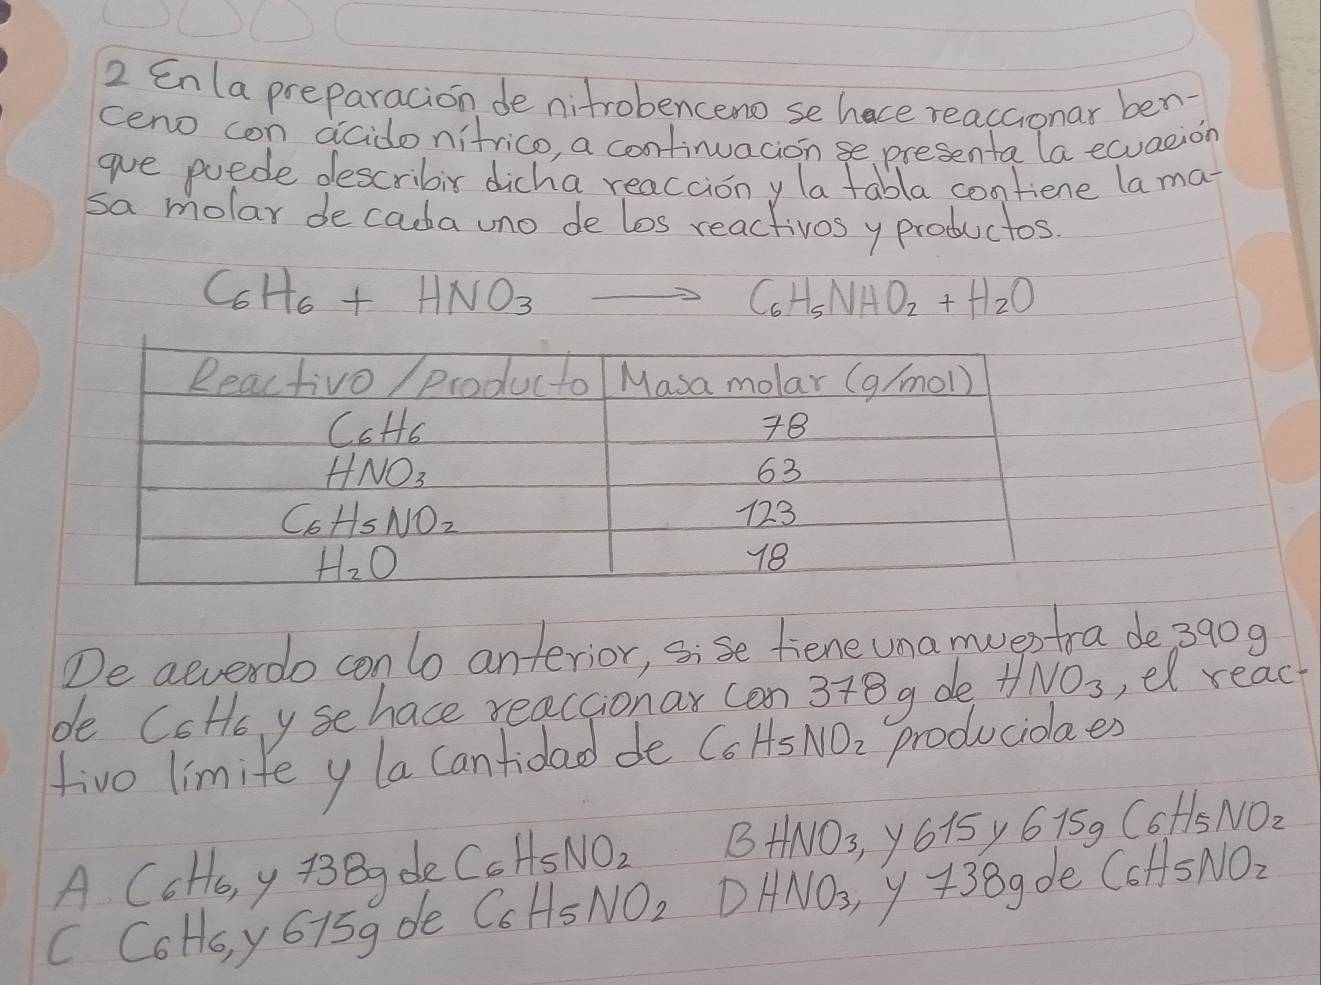 2 En la preparación de nitrobenceno se hace reaccionar ben-
ceno con ácido nítrico, a continuación se presenta la ecuación
que puede describir dicha reacción y la tabla contiene la ma-
sa molar de cada uno de los reactivos y productos.
C₆H₆ + HNO₃ → C₆H₅NHO₂ + H₂O
Reactivo / Producto Masa molar (g/mol)
C₆H₆ 78
HNO₃ 63
C₆H₅NO₂ 123
H₂O 18
De acuerdo con lo anterior, si se tiene una muestra de 390g
de C₆H₆ y se hace reaccionar con 378g de HNO₃, el reac-
tivo límite y la cantidad de C₆H₅NO₂ producida es
A C₆H₆, y 738g de C₆H₅NO₂ B HNO₃, y 615 y 615g C₆H₅NO₂
C C₆H₆, y 615g de C₆H₅NO₂ D HNO₃, y 738g de C₆H₅NO₂